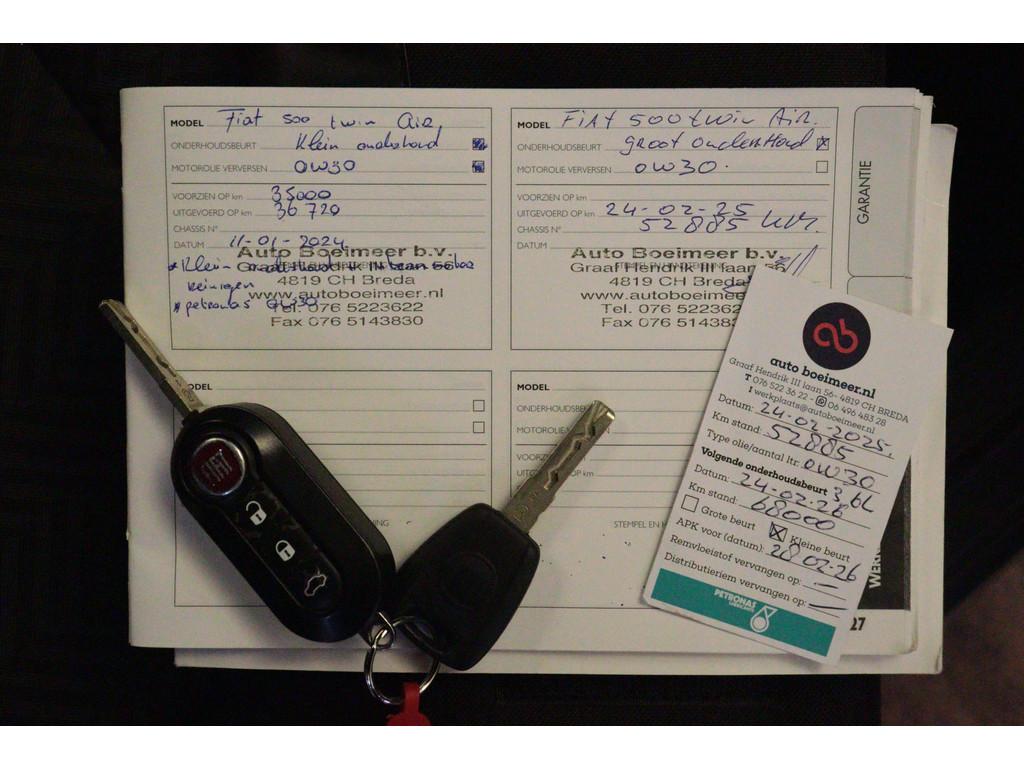 MODEL Fiat 500 twin Air
ONDERHOUDSBEURT Klein onderhoud
MOTOROLIE VERVERSEN 0W30
VOORZIEN OP km 35000
UITGEVOERD OP km 36720
CHASSIS N°
DATUM 11-01-2024
Auto Boeimeer b.v.
Graaf Hendrik III laan 56
4819 CH Breda
www.autoboeimeer.nl
Tel. 076 5223622
Fax 076 5143830
* Klein
reinigen
* petronas 0W30
MODEL FIAT 500 twin Air.
ONDERHOUDSBEURT groot onderHoud
MOTOROLIE VERVERSEN 0W30.
VOORZIEN OP km
UITGEVOERD OP km 24-02-25
CHASSIS N° 52885 km.
DATUM
Auto Boeimeer b.v.
Graaf Hendrik III laan 56
4819 CH Breda
www.autoboeime
Tel. 076 522362
Fax 076 51438
GARANTIE
ODEL
MODEL
ONDERHOUDSBE
MOTOROLI
VOORZ
UITG km
NING
STEMPEL EN H
WERK
27
auto boeimeer.nl
Graaf Hendrik III laan 56 - 4819 CH BREDA
T 076 522 36 22 - 06 496 483 28
I werkplaats@autoboeimeer.nl
Datum: 24-02-2025.
Km stand: 52885
Type olie/aantal ltr: 0W30
3,6L
Volgende onderhoudsbeurt
Datum: 24-02-26
Km stand: 68000
Grote beurt Kleine beurt
APK voor (datum): 28-02-26
Remvloeistof vervangen op: —
Distributieriem vervangen op: —
PETRONAS
LUBRICANTS